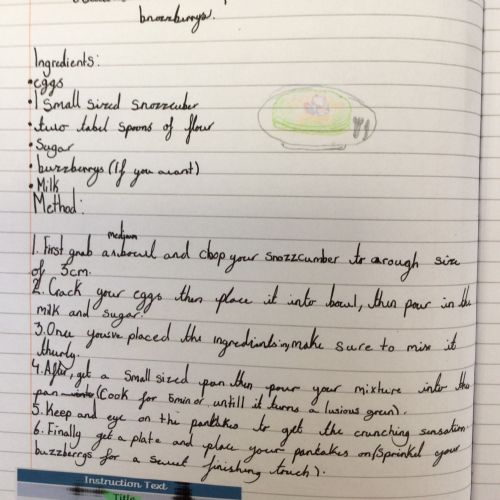 bnozzberrys.
Ingredients:
• eggs
• 1 small sized snozzcuber
• two tabel spoons of flour
• Sugar
• buzzberrys (If you want)
• Milk
Method:
medium
1. First grab a bowl and chop your snozzcumber to a rough size
of 5cm.
2. Crack your eggs then place it into bowl, then pour in the
milk and sugar.
3. Once youve placed the ingredients in, make sure to mix it
thurly.
4. After, get a small sized pan then pour your mixture into the
pan into (Cook for 5min or untill it turns a lusious green).
5. Keep and eye on the pankakes to get the crunching sensation.
6. Finally get a plate and place your pancakes on (Sprinkel your
buzzbergs for a sweet finishing touch).
Instruction Text
Title